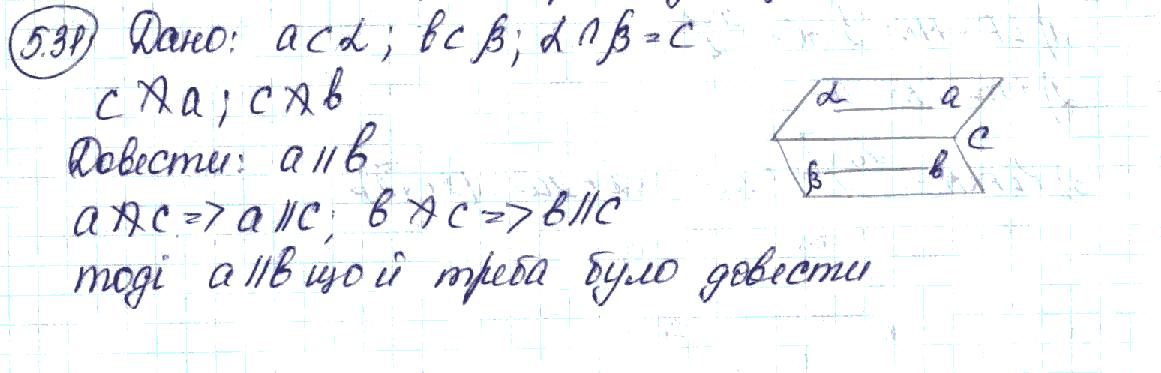 5.31 Дано: a⊂α; b⊂β; α∩β=c
c∦a; c∦b
α a
c
β b
Довести: a∥b
a∦c=>a∥c; b∦c=>b∥c
тоді a∥b що й треба було довести